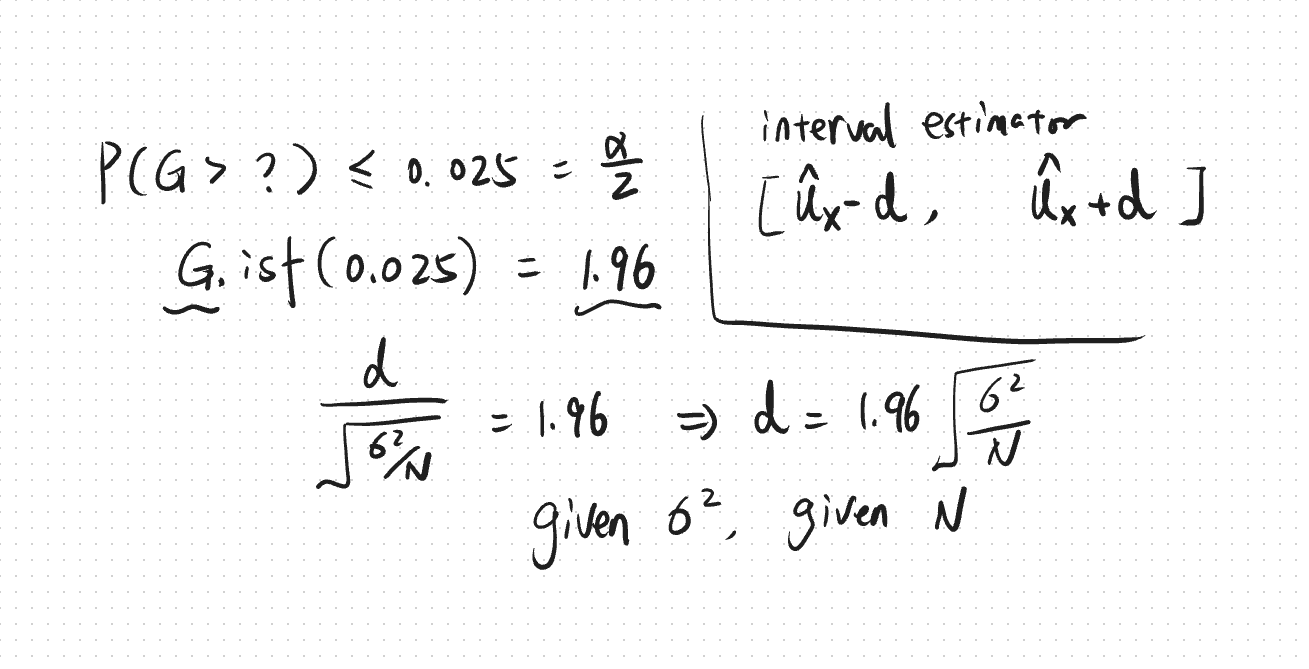 P(G > ?) ≤ 0.025 = α/2
G.isf(0.025) = 1.96
interval estimator
[ûₓ - d, ûₓ + d]
d / √(σ²/N) = 1.96 ⇒ d = 1.96 √(σ²/N)
given σ², given N